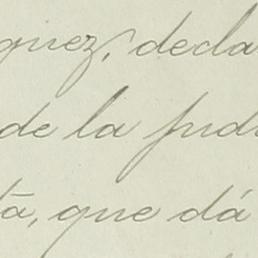 guez, decla
de la jud
ta, que dá